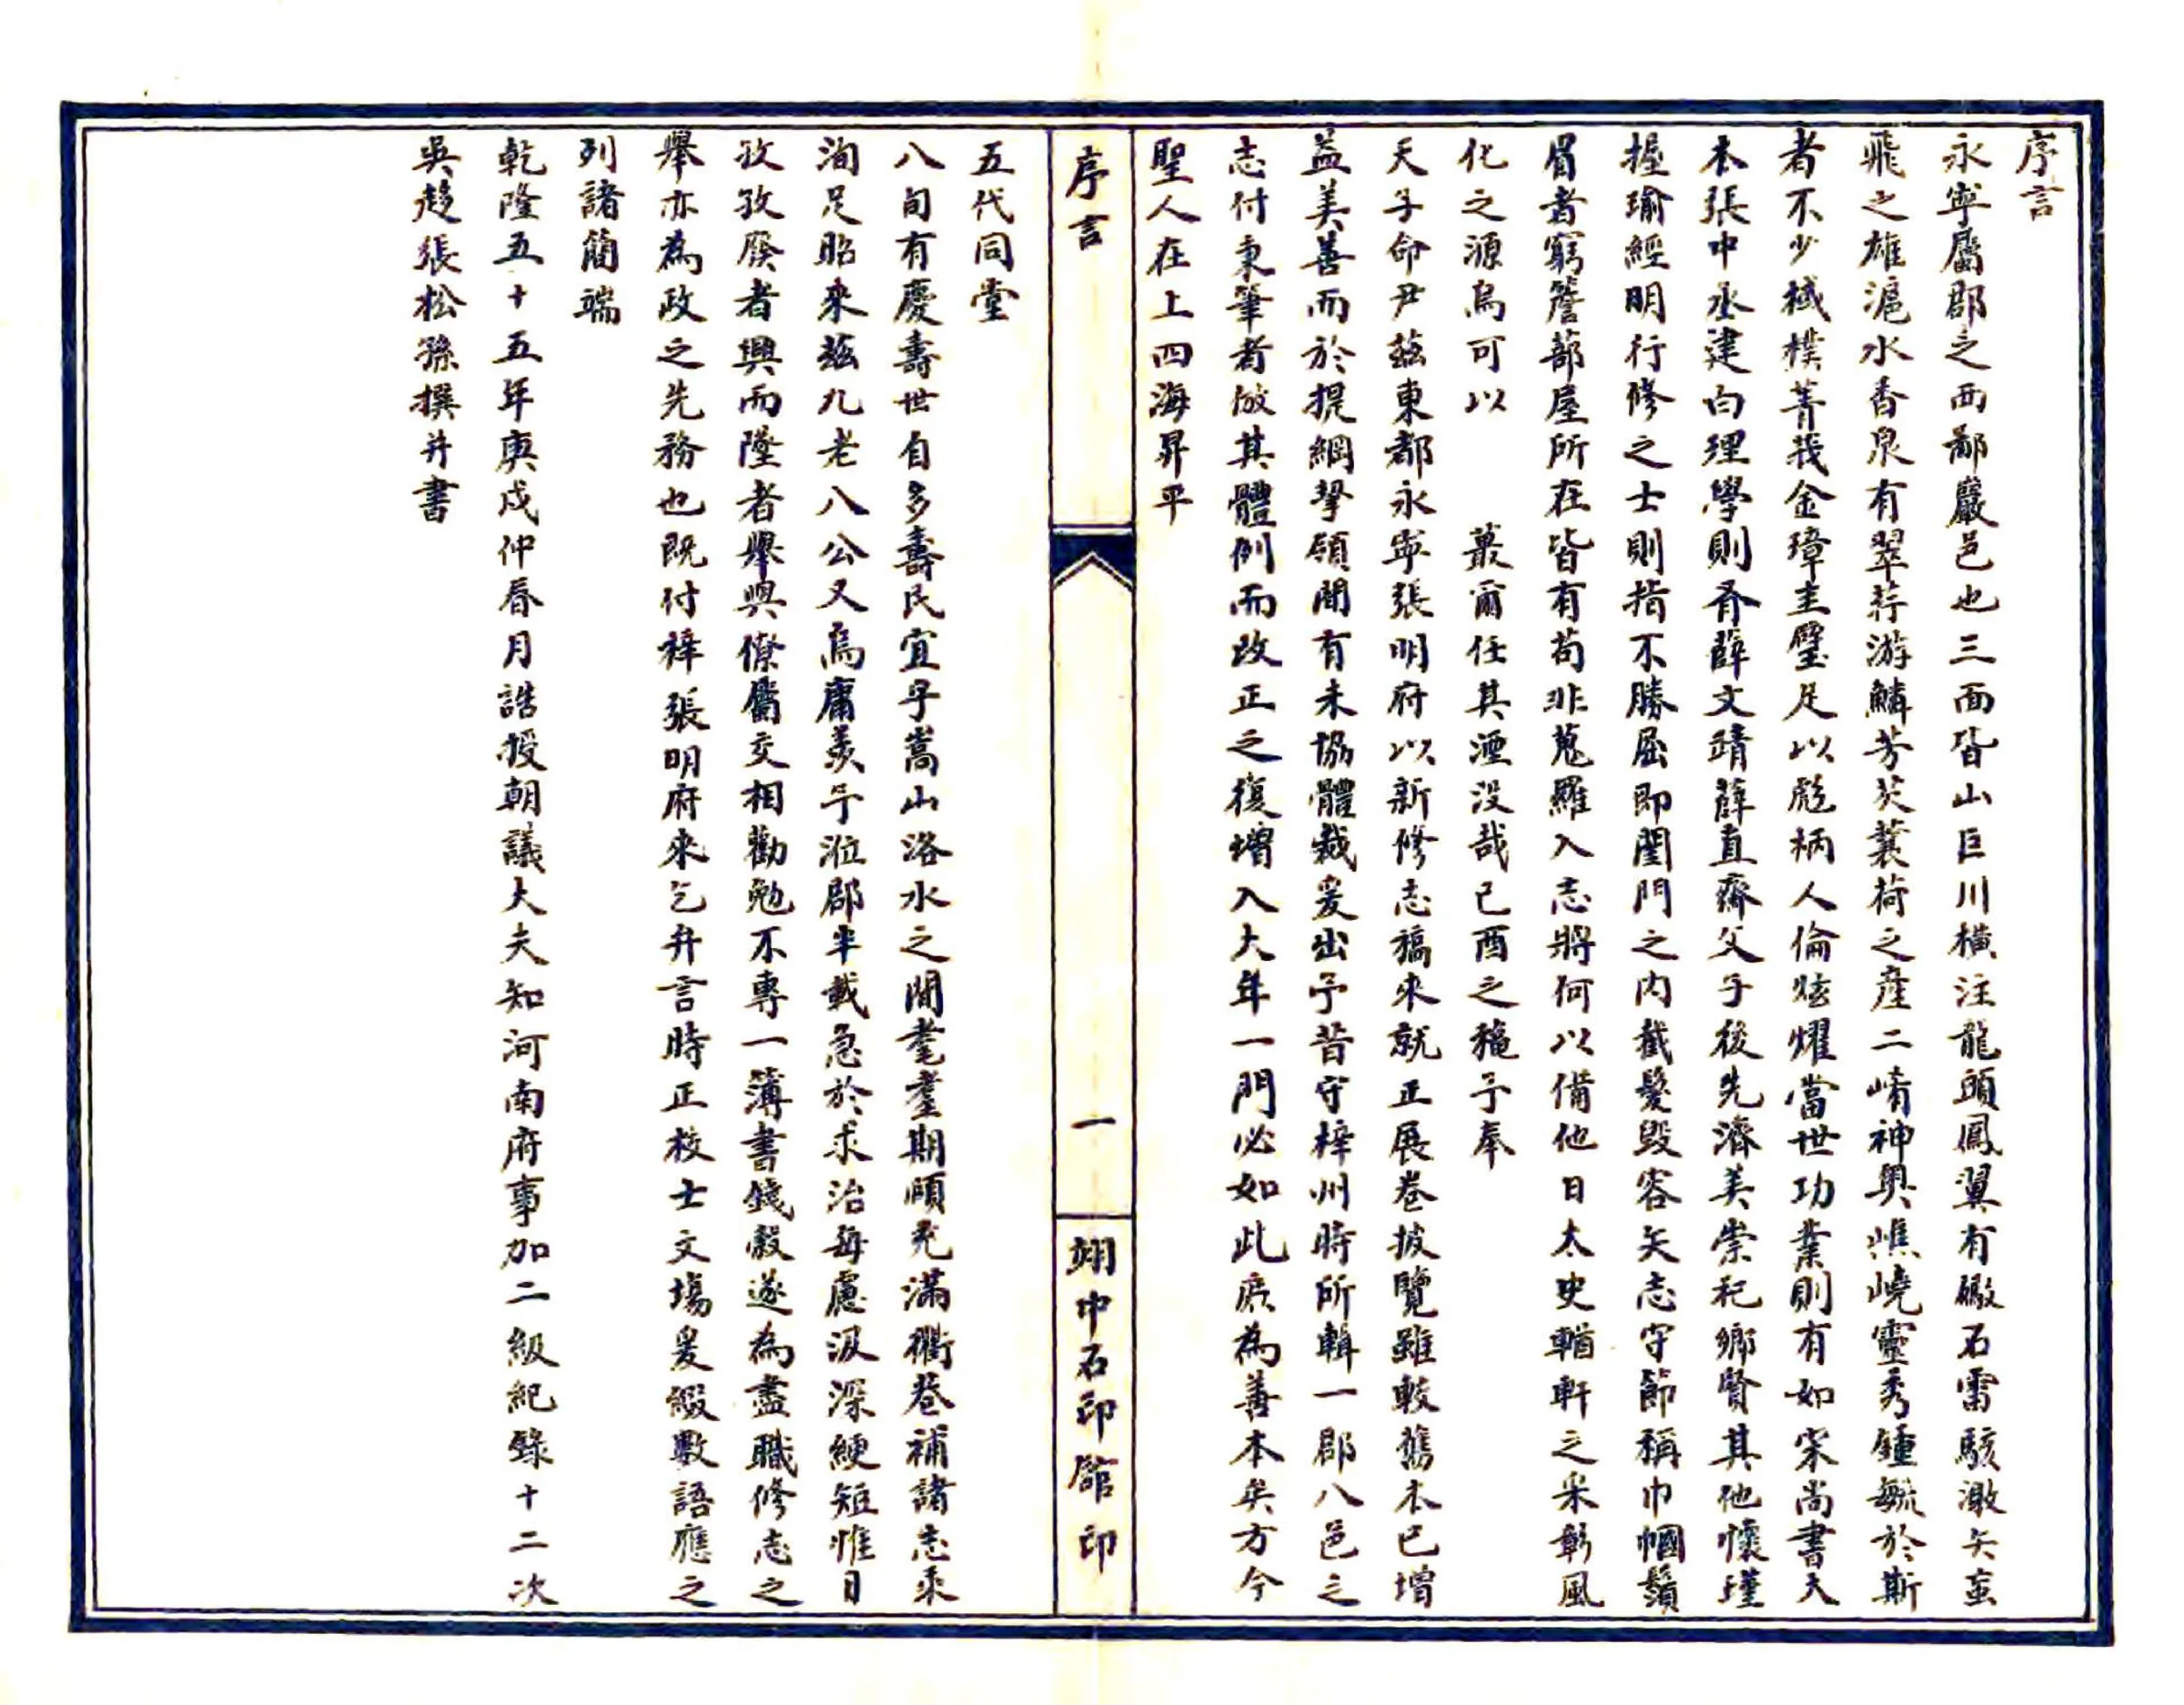 序言
永寧屬郡之西鄙巖邑也三面皆山巨川橫注龍頭鳳翼有礮石雷駭激矢蝱
飛之雄滬水香泉有翠荇游鱗芳芡蘘荷之產二崤神奧嶕嶢靈秀鍾毓於斯
者不少棫樸菁莪金璋圭璧足以彪柄人倫炫耀當世功業則有如宋尚書大
本張中丞建白理學則有薛文靖薛直齋父子後先濟美崇祀鄉賢其他懷瑾
握瑜經明行修之士則指不勝屈即閨門之內截髮毀容矢志守節稱巾幗鬚
眉者窮簷蔀屋所在皆有苟非蒐羅入志將何以備他日太史輶軒之采彰風
化之源烏可以 蕞爾任其湮沒哉己酉之穐予奉
天子命尹茲東都永寧張明府以新修志稿來就正展卷披覽雖較舊本已增
益美善而於提綱挈領間有未協體裁爰出予昔守梓州時所輯一郡八邑之
志付秉筆者倣其體例而改正之復增入大年一門必如此庶為善本矣方今
聖人在上四海昇平
序言
一
翊中石印館印
五代同堂
八旬有慶壽世自多壽民宜乎嵩山洛水之間耄耋期頤充滿衢巷補諸志乘
洵足昭來茲九老八公又烏庸羨予涖郡半載急於求治每慮汲深綆短惟日
孜孜廢者興而墜者舉與僚屬交相勸勉不專一簿書錢穀遂為盡職修志之
舉亦為政之先務也既付梓張明府來乞弁言時正校士文場爰綴數語應之
列諸簡端
乾隆五十五年庚戌仲春月誥授朝議大夫知河南府事加二級紀錄十二次
吳趨張松孫撰并書